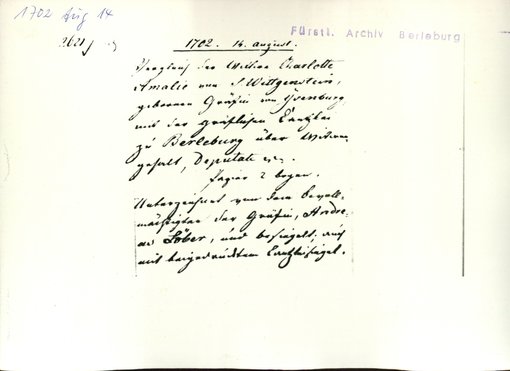 1702 Aug 14
Fürstl. Archiv Berleburg
1702. 14. August.
Vergleich der Wittwe Charlotte
Amalie von S. Wittgenstein,
geborenen Gräfin von Ysenburg
mit der gräflichen Canzlei
zu Berleburg über Wittwen
gehalt, Deputate etc.
Papier 2 bogen.
Unterzeichnet von dem bevoll-
mächtigten der Gräfin, Andre-
as Löber, und besiegelt; auch
mit beigedrucktem Canzleisiegel.